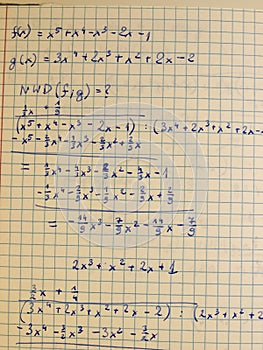 f(x) = x⁵ + x⁴ - x³ - 2x - 1
g(x) = 3x⁴ + 2x³ + x² + 2x - 2
NWD(f,g) = ?
1/3x + 1/9
(x⁵ + x⁴ - x³ - 2x - 1) : (3x⁴ + 2x³ + x² + 2x -
- x⁵ - 2/3x⁴ - 1/3x³ - 2/3x² + 2/3x
= 1/3x⁴ - 4/3x³ - 2/3x² - 4/3x - 1
- 1/3x⁴ - 2/9x³ - 1/9x² - 2/9x + 2/9
= - 14/9x³ - 7/9x² - 14/9x - 7/9
2x³ + x² + 2x + 1
3/2x + 1/4
(3x⁴ + 2x³ + x² + 2x - 2) : (2x³ + x² + 2
- 3x⁴ - 3/2x³ - 3x² - 3/2x